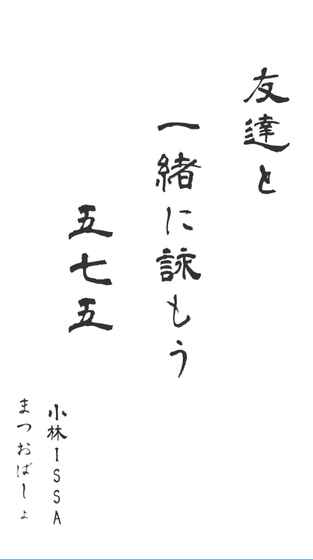 友達と
一緒に詠もう
五七五
小林ISSA
まつおばしょ